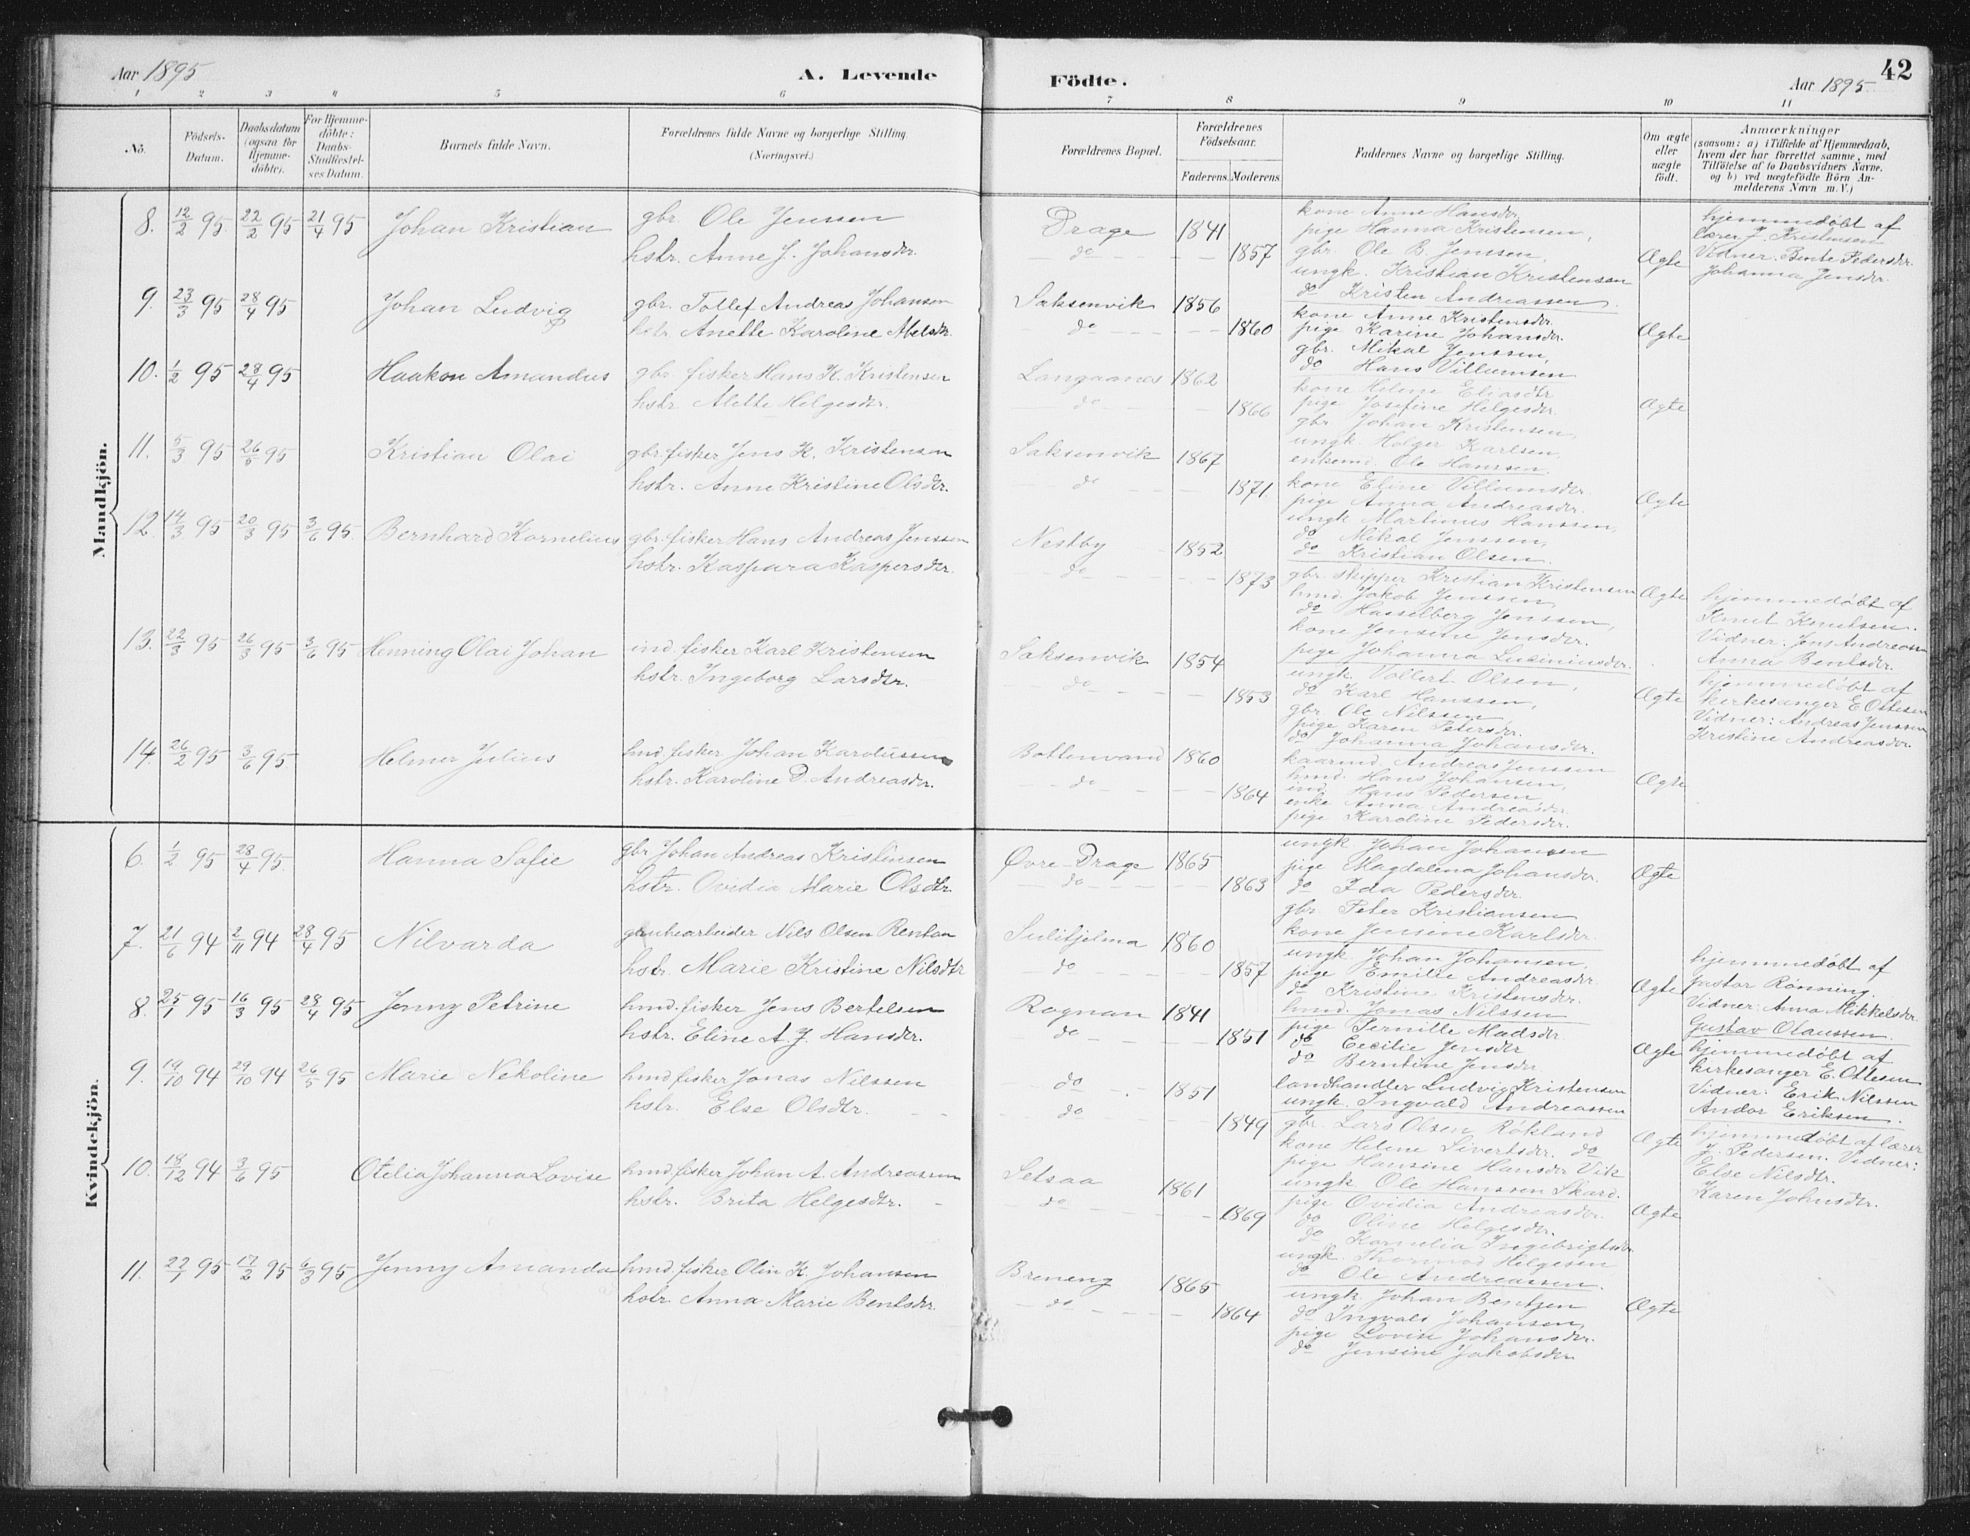 Aar 1895
A. Levende
Födte.
Aar 1895
42
1 2 3 4 5 6 7 8 9 10 11
No.
Födsels-Datum.
Daabsdatum (ogsaa for Hjemme-döbte).
For Hjemme-döbte: Daabs-Stadfæstel-ses Datum.
Barnets fulde Navn.
Forældrenes fulde Navne og borgerlige Stilling.
(Næringsvei.)
Forældrenes Bopæl.
Forældrenes Födselsaar.
Faderens. Moderens.
Faddernes Navne og borgerlige Stilling.
Om ægte eller uægte födt.
Anmærkninger
(saasom: a) i Tilfælde af Hjemmedaab, hvem der har forrettet samme, med Tilföielse af to Daabsvidners Navne. og b) ved uægtefödte Börn An-melderens Navn m. V.)
Mandkjön.
8. 12/2 95 22/2 95 21/4 95 Johan Kristian
gbr. Ole Jenssen
hstr. Anne J. Johansdtr.
Drage 1841
do 1857
kone Anne Hansdtr.
pige Hanna Kristensen,
gbr. Ole B. Jenssen,
ungk. Kristian Kristenssen
do Kristen Andreassen.
Ægte
hjemmedøbt af
lærer J. Kristensen
Vidner: Bente Pedersdtr.
Johanna Jensdtr.
9. 23/3 95 28/4 95 Johan Ludvig
gbr. Tollef Andreas Johansen
hstr. Anette Karoline Abelsdtr.
Saksenvik 1856
do 1860
kone Anne Kristensdtr.
pige Karine Johansdtr.
gbr. Mikal Jenssen,
do Hans Villumsen
Ægte
10. 1/2 95 28/4 95 Haakon Amandus
gbr. fisker Hans K. Kristensen
hstr. Alette Helgesdtr.
Langaanes 1862
do 1866
kone Helene Eliasdtr
pige Josefine Helgesdtr.
gbr Johan Kristensen,
ungk. Holger Karlsen,
enkemd. Ole Hanssen.
Ægte
11. 5/3 95 26/5 95 Kristian Olai
gbr. fisker Jens K. Kristensen
hstr. Anne Kristine Olsdtr.
Saksenvik 1867
do 1871
kone Eline Villumsdtr.
pige Anna Andreasdtr.
ungk Martinus Hanssen,
do Mikal Jenssen,
do Kristian Olsen.
Ægte
12. 14/3 95 20/3 95 3/6 95 Bernhard Kornelius
gbr. fisker Hans Andreas Jenssen
hstr. Kaspara Kaspersdtr.
Nestby 1852
do 1873
gbr. skipper Kristian Kristensen
hmd. Jakob Jenssen,
do Hasselberg Jenssen,
kone Jensine Jensdtr.
pige Johanna Lusiniusdtr.
Ægte
hjemmedøbt af
Knut Knutsen.
Vidner: Jens Andreassen
Anna Bentsdtr.
13. 22/3 95 26/3 95 3/6 95 Henning Olai Johan
ind. fisker Karl Kristensen
hstr. Ingeborg Larsdtr.
Saksenvik 1854
do 1853
ungk. Tollert Olsen,
do Karl Hanssen,
gbr. Ole Nilssen,
pige Karen Petersdtr.
do Johanna Johansdtr.
Ægte
hjemmedøbt af
kirkesanger E Ottesen
Vidner: Andreas Jenssen
Kristine Andreasdtr.
14. 26/2 95 3/6 95 Helmer Julius
hmd. fisker Johan Karolussen
hstr. Karoline D. Andreasdtr.
Bottenvand 1860
do 1864
kaarmd. Andreas Jenssen
hmd. Hans Johansen,
ind. Hans Pedersen,
enke Anna Andreasdtr.
pige Karoline Pedersdtr.
Ægte
Kvindekjön.
6. 1/2 95 28/4 95. Hanna Sofie
gbr Johan Andreas Kristinssen
hstr. Ovidia Marie Olsdtr.
Øvre-Drage 1865
do 1863
ungk Johan Johansen
pige Magdalena Johansdtr.
do Ida Pedersdtr.
gbr. Peter Kristiansen
kone Jensine Karlsdtr.
Ægte
7. 21/6 94 2/11 94 28/4 95 Nilvarda
grubearbeider Nils Olsen Rentan
hstr. Marie Kristine Nilsdtr
Sulitjelma 1860
do 1857
ungk Johan Johansen,
pige Emilie Andreasdtr.
do Kristine Kristensdtr.
hmd. Jonas Nilssen
Ægte
hjemmedøbt af
pastor Rønning.
Vidner: Anna Mikkelsdtr.
Gustav Olaussen.
8. 25/1 95 16/3 95 28/4 95 Jenny Petrine
hmd. fisker Jens Bertelsen
hstr. Eline A. J. Hansdtr.
Rognan 1841
do 1851
pige Pernille Madsdtr.
do Cecilie Jensdtr
do Berntine Jensdtr.
landhandler Ludvig Kristensen
ungk. Ingvald Andreassen
Ægte
hjemmedøbt af
kirkesanger E. Ottesen
Vidner: Erik Nilssen
Andor Eriksen.
9. 19/10 94 29/10 94 26/5 95 Marie Nekoline
hmd fisker Jonas Nilssen
hstr. Else Olsdtr.
do 1851
do 1849
gbr. Lars Olsen Røkland
kone Helene Sivertsdtr. do
pige Hansine Hansdtr Vik
ungk Ole Hanssen Skard.
Ægte
hjemmedøbt af lærer
J. Pedersen. Vidner:
Else Nilsdtr.
Karen Johnsdtr.
10. 18/12 94 3/6 95 Otelia Johanna Lovise
hmd. fisker Johan A. Andreassen
hstr. Brita Helgesdtr.
Setsaa 1861
do 1869
pige Ovidia Andreasdtr.
do Oline Helgesdtr.
do Kornelia Ingebrigtsdtr.
ungk. Thormod Helgesen
do Ole Andreassen.
Ægte
11. 22/1 95 17/2 95 6/3 95 Jenny Amanda
hmd. fisker Olin K. Johansen
hstr. Anna Marie Bentsdtr.
Breneng 1865
do 1864
ungk. Johan Bentzen
do Ingvald Johansen,
pige Lovise Johansdtr.
do Jensine Jakobsdtr.
Ægte